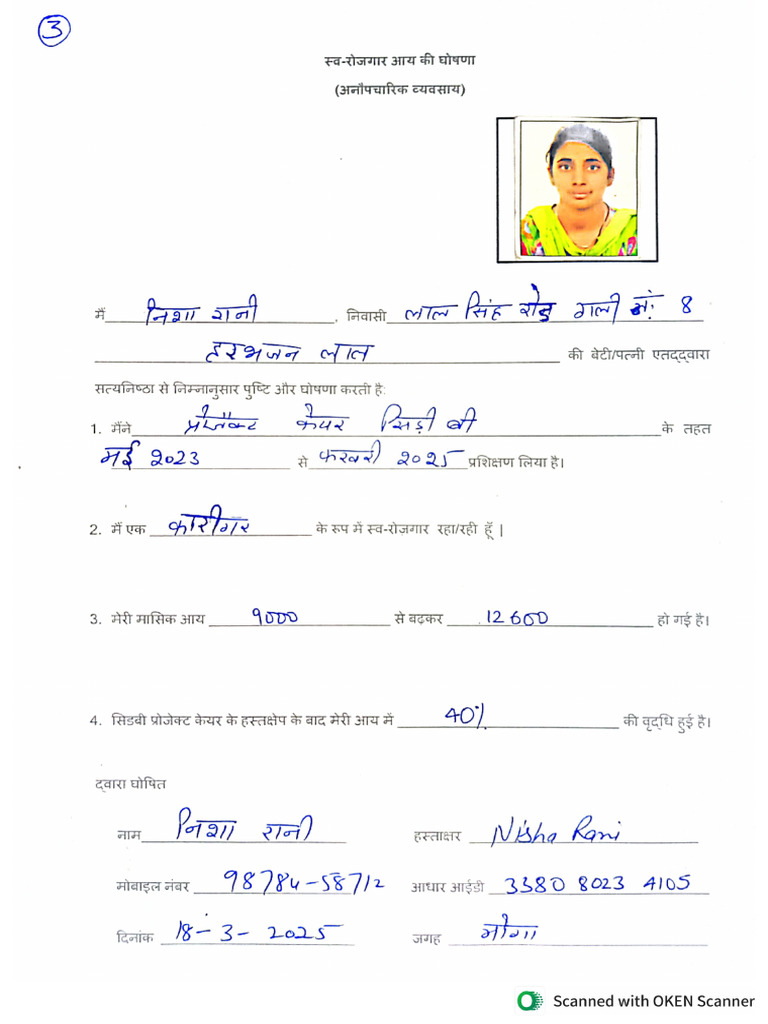 3
स्व-रोजगार आय की घोषणा
(अनौपचारिक व्यवसाय)
मैं निशा रानी, निवासी लाल सिंह रोड गली नं: 8
हरभजन लाल की बेटी/पत्नी एतद्द्वारा
सत्यनिष्ठा से निम्नानुसार पुष्टि और घोषणा करती है:
1. मैंने प्रोजैक्ट केयर सिड़ी बी के तहत
मई 2023 से फरवरी 2025 प्रशिक्षण लिया है।
2. मैं एक कारीगर के रूप में स्व-रोजगार रहा/रही हूँ |
3. मेरी मासिक आय 9000 से बढ़कर 12600 हो गई है।
4. सिडबी प्रोजेक्ट केयर के हस्तक्षेप के बाद मेरी आय में 40% की वृद्धि हुई है।
द्वारा घोषित
नाम निशा रानी हस्ताक्षर Nisha Rani
मोबाइल नंबर 98784-58712 आधार आईडी 3380 8023 4105
दिनांक 18-3-2025 जगह मोगा
Scanned with OKEN Scanner